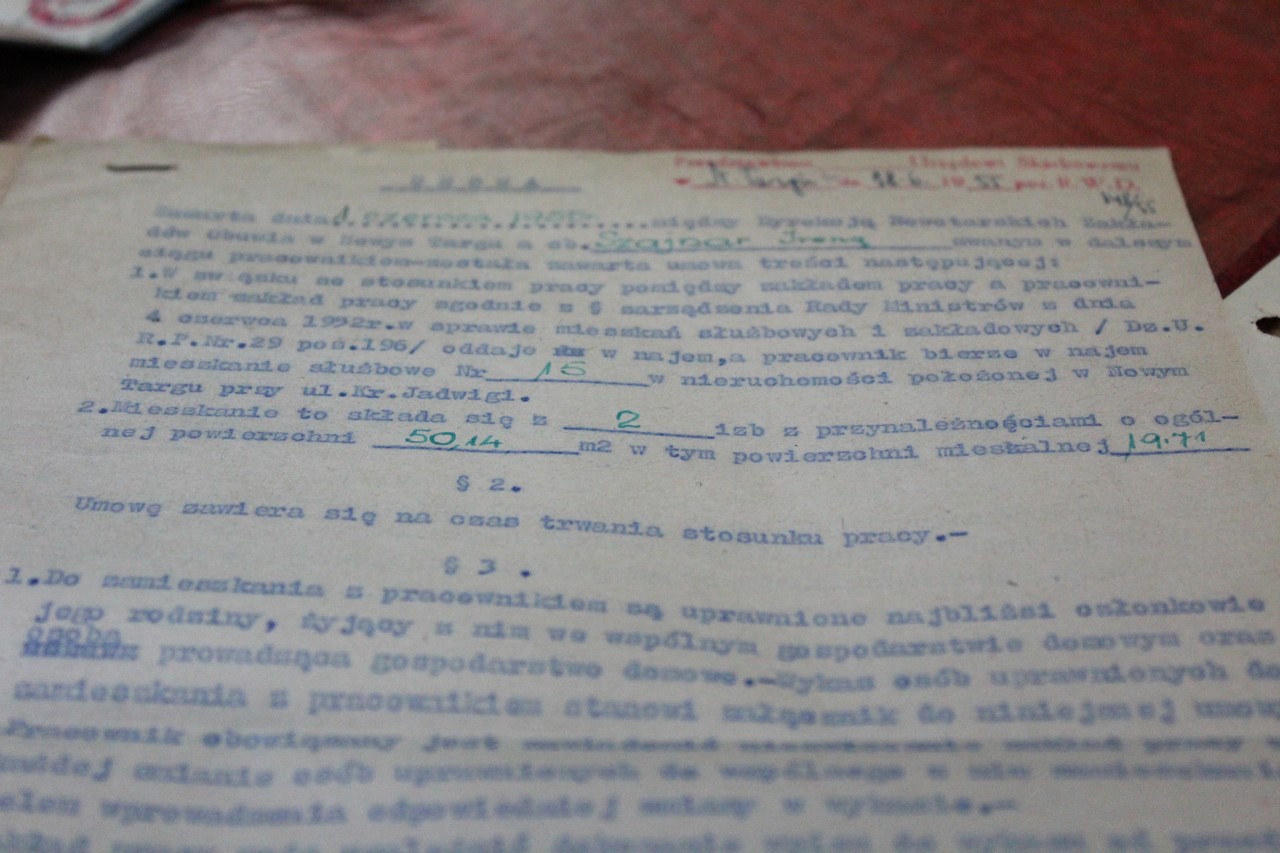 Urzędowi Skarbowemu
N. Targu dn. 18.6. 1955 poz. R.W.D.
U M O W A
Zawarta dnia 1 czerwca 1955 między Dyrekcją Nowotarskich Zakła-
dów Obuwia w Nowym Targu a ob. Szajnar Ireną zwanym w dalszym
ciągu pracownikiem-została zawarta umowa treści następującej:
1.W związku ze stosunkiem pracy pomiędzy zakładem pracy a pracowni-
kiem zakład pracy zgodnie z § zarządzenia Rady Ministrów z dnia
4 czerwca 1952r.w sprawie mieszkań służbowych i zakładowych / Dz.U.
R.P.Nr.29 poś.196/ oddaje w najem,a pracownik bierze w najem
mieszkanie służbowe Nr 15 w nieruchomości położonej w Nowym
Targu przy ul.Kr.Jadwigi.
2.Mieszkanie to składa się z 2 izb z przynależnościami o ogól-
nej powierzchni 50,14 m2 w tym powierzchni mieszkalnej 19.71
§ 2.
Umowę zawiera się na czas trwania stosunku pracy.-
§ 3 .
1.Do zamieszkania z pracownikiem są uprawnione najbliżsi członkowie
jego rodziny, żyjący z nim we wspólnym gospodarstwie domowym oraz
osoba
prowadząca gospodarstwo domowe.-Wykaz osób uprawnionych do
zamieszkania z pracownikiem stanowi załącznik do niniejszej umowy
Pracownik obowiązany jest zawiadomić zakład pracy
każdej zmianie osób uprawnionych do wspólnego z nim zamieszkania
celem wprowadzenia odpowiedniej zmiany w wykazie.-